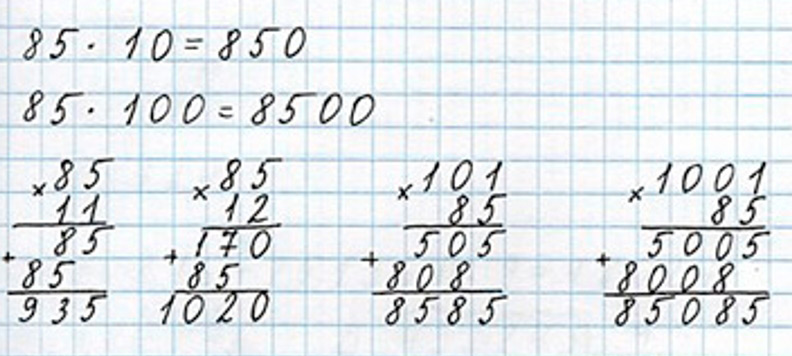 85 · 10 = 850
85 · 100 = 8500
× 85
11
+ 85
85
935
× 85
12
+ 170
85
1020
× 101
85
+ 505
808
8585
× 1001
85
+ 5005
8008
85085